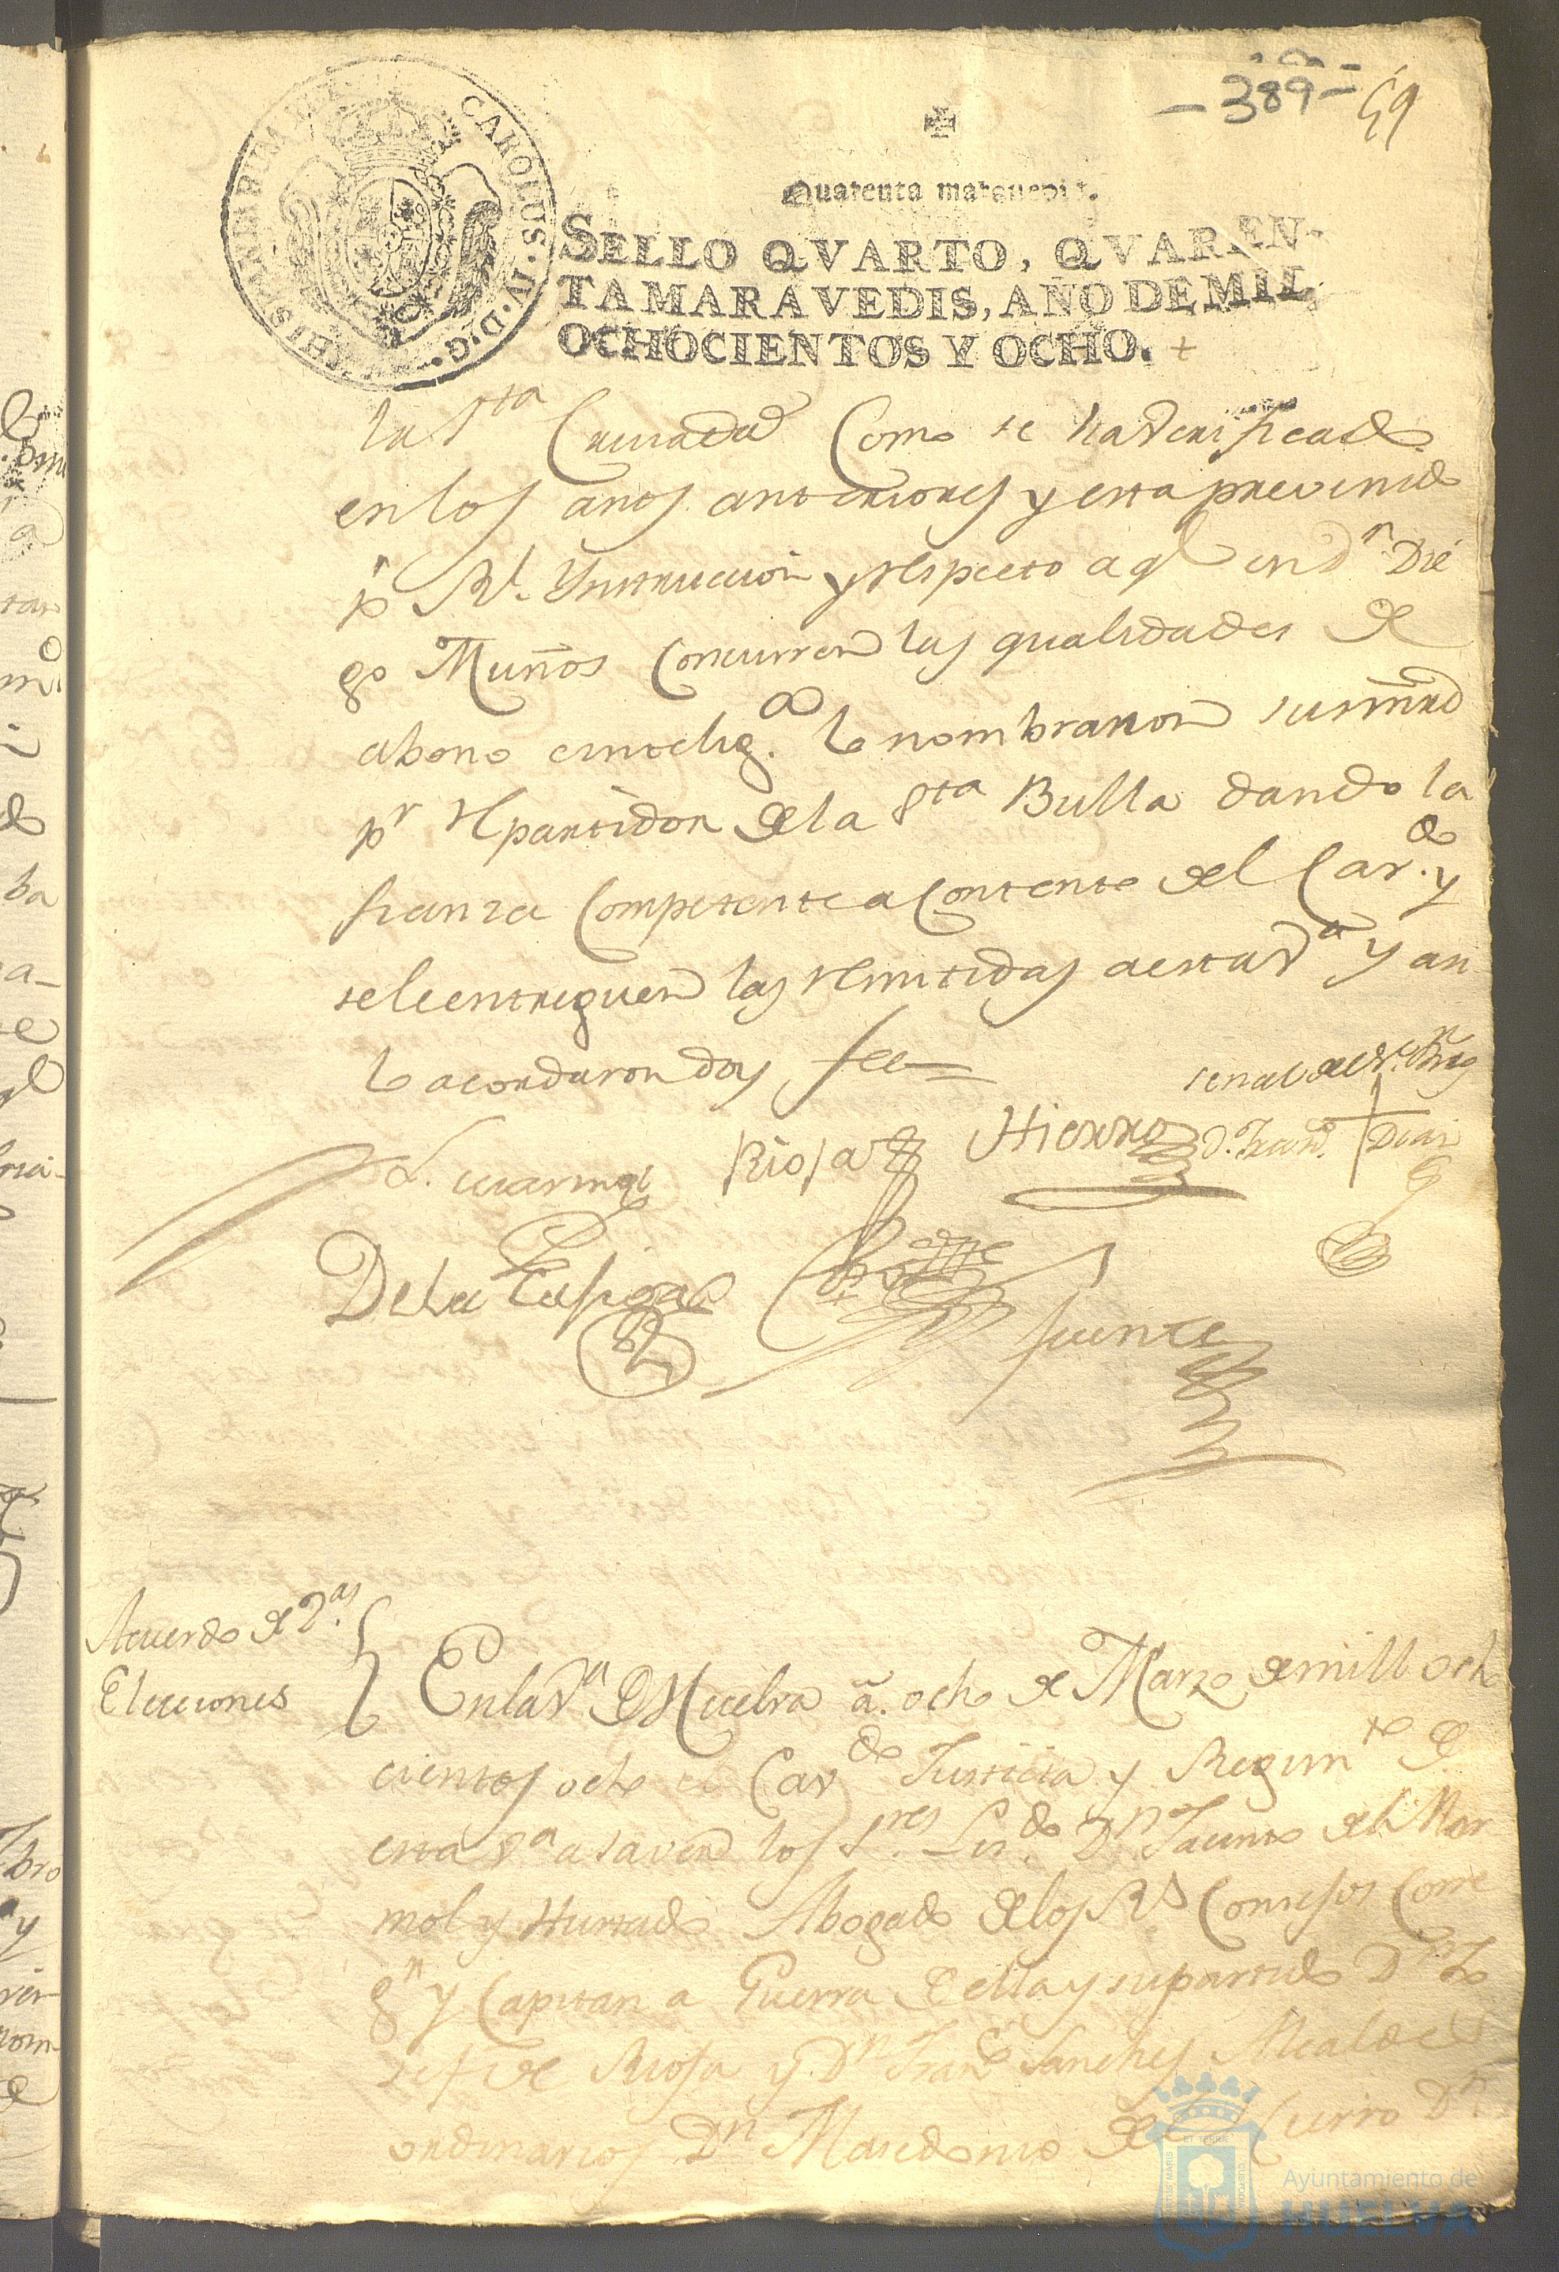 -389-
59
Quarenta maravedis.
CAROLUS. IV. D. G. HISPANIAR. REX
SELLO QVARTO, QVAREN-
TA MARAVEDIS, AÑO DE MIL
OCHOCIENTOS Y OCHO. +
la Sta Cruzada Como se ha verificado
en los años anteriores y esta prevenido
pr Rl. Ynstruccion y respecto a ql en Dn. Die
go Muños Concurren las qualidades de
abono e intelig.a lo nombraron sus mrds
pr repartidor de la Sta Bulla dando la
fianza Competente a Contento del Cav.do y
se le entreguen las remitidas a esta Va y asi
lo acordaron doy fee=
señal de
d. Fran.co + Diaz
L. Marmol Rioja Hierro
De la
Fuente
Acuerdo de 2.as
Elecciones
En la Va de Huelva a. ocho de Marzo de mill ocho
cientos ocho el Cavdo Justicia y Regimto de
esta Va a saver los Sres. Licdo. Dn Jacinto del Mar
mol y Hurtado Abogado de los Rs Consejos Corre
gn y Capitan a Guerra de ella y su partido Dn Jo
sef de Rioja y Dn Franco Sanches Alcaldes
ordinarios Dn Macedonio del Hierro Dn
Ayuntamiento de
HUELVA